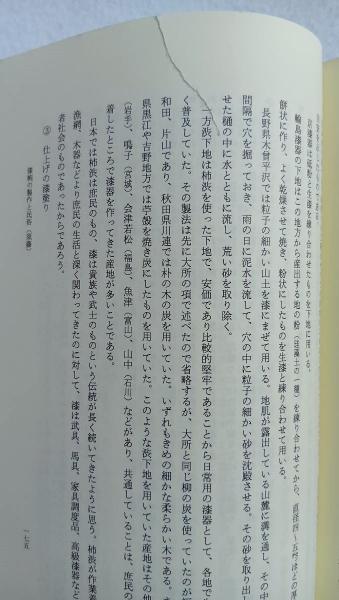 京漆器は砥粉と生漆を練り合わせたものを下地に用いる。
輪島漆器の下地はこの地方から産出する地の粉（珪藻土の一種）を練り合わせてから、直径四～五㌢ほどの厚
餅状に作り、よく乾燥させて焼き、粉状にしたものを生漆と練り合わせて用いる。
長野県木曾平沢では粒子の細かい山土を漆にまぜて用いる。地肌が露出している山麓に溝を通し、その中
間隔で穴を掘っておき、雨の日に泥水を流して、穴の中に粒子の細かい砂を沈殿させる。その砂を取り出し
せた樋の中に水とともに流し、荒い砂を取り除く。
一方渋下地は柿渋を使った下地で、安価であり比較的堅牢であることから日常用の漆器として、各地で
く普及していた。その製法は先に大所の項で述べたので省略するが、大所と同じ柳の炭を使っていたのが
和田、片山であり、秋田県川連では朴の木の炭を用いていた。いずれもきめの細かな柔らかい木である。ま
県黒江や吉野地方では籾殻を焼き炭にしたものを用いていた。このような渋下地を用いていた産地はその他
（岩手）、鳴子（宮城）、会津若松（福島）、魚津（富山）、山中（石川）などがあり、共通していることは、庶民の
着したところで漆器を作ってきた産地が多いことである。
日本では柿渋は庶民のもの、漆は貴族や武士のものという伝統が長く続いてきたように思う。柿渋が作業着
漁網、木器などより庶民の生活と深く関わってきたのに対して、漆は武具、馬具、家具調度品、高級漆器など
者社会のものであったからであろう。
③ 仕上げの漆塗り
漆椀の製作と民俗（須藤）
一七五